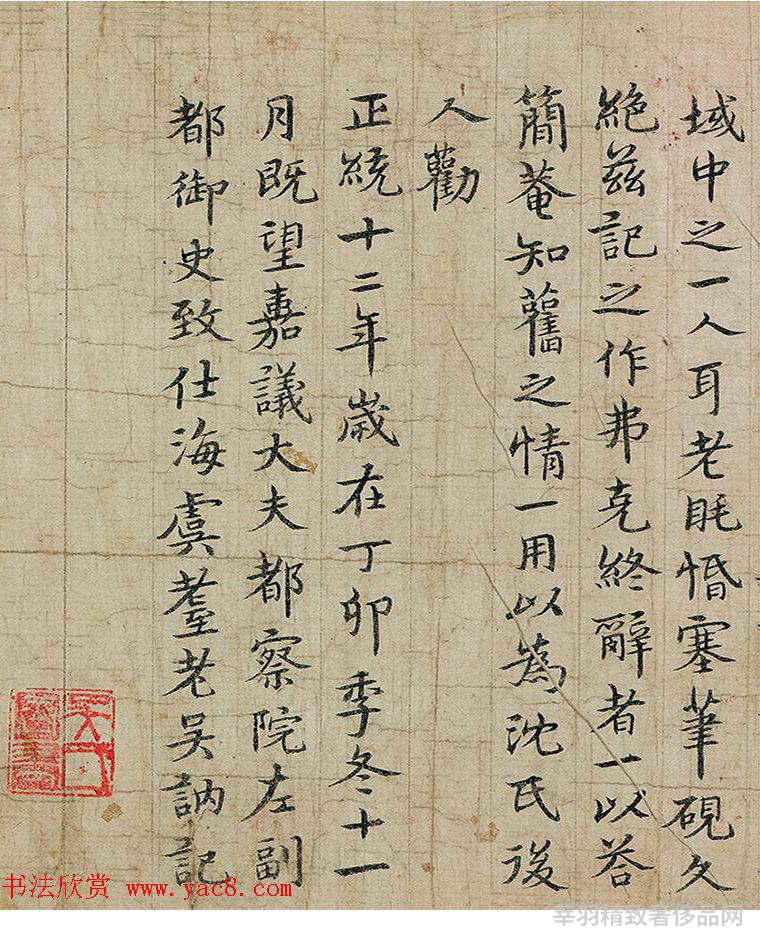 域中之一人耳老眊惛塞筆硯久
絶兹記之作弗克終辭者一以荅
簡菴知舊之情一用以為沈氏後
人勸
正統十二年歲在丁卯季冬十一
月既望嘉議大夫都察院左副
都御史致仕海虞耋老吴訥記
书法欣赏 www.yac8.com
辛羽精致奢侈品网